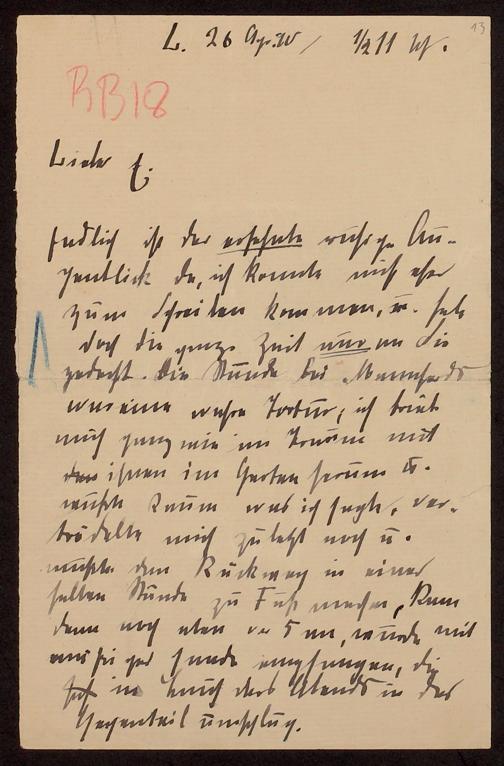 13
L. 26 Apr. / 1/2 11 Uhr.
BB18
Lieber E.
Endlich ist der ersehnte ruhige Au-
genblick da, ich konnte nicht eher
zum Schreiben kommen, u. habe
doch die ganze Zeit nur an Sie
gedacht. Die Stunde bei Mannhardts
war eine wahre Tortur; ich trieb
mich ganz wie im Traum mit
ihnen im Garten herum u.
wußte kaum was ich sagte, ver-
trödelte mich zuletzt noch u.
mußte den Rückweg in einer
halben Stunde zu Fuß machen, kam
dann noch eben vor 5 an, wurde mit
Freude empfangen, die
im Lauf des Abends in das
Gegenteil umschlug.